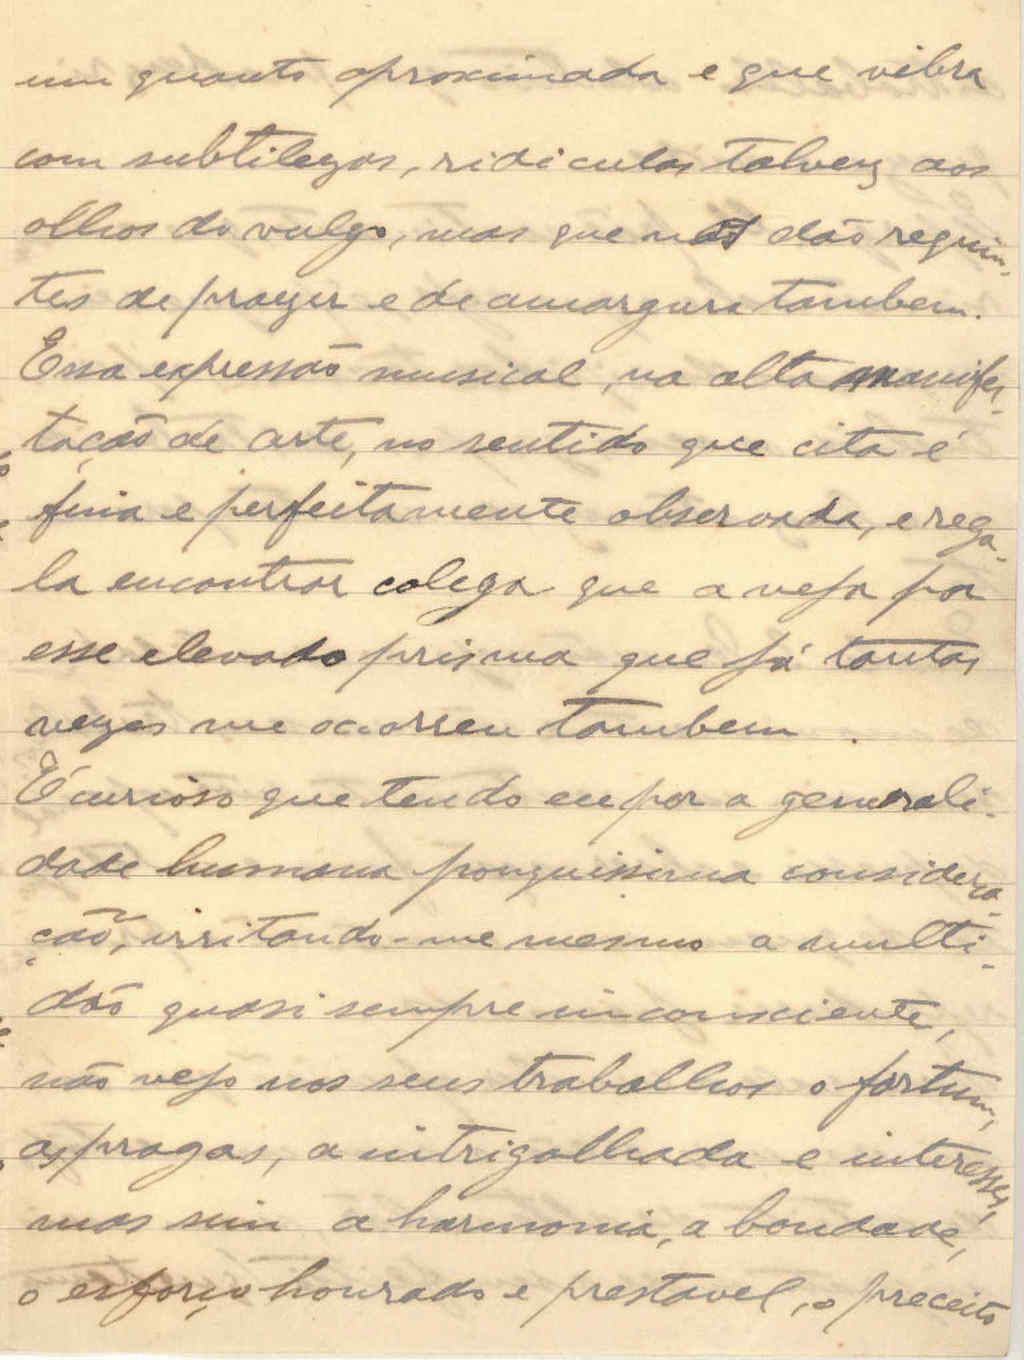 um quanto aproximada e que vibra
com subtilezas, ridiculas talvez aos
olhos do vulgo, mas que nos dão requin-
tes de prazer e de amargura tambem.
Essa expressão musical, na alta manifes-
tação de arte, no sentido que cita é
fina e perfeitamente observada, e rega-
la encontrar colega que a veja por
esse elevado prisma que já tantas
vezes me ocorreu tambem.
É curioso que tendo eu por a generali-
dade humana pouquissima considera-
ção, irritando-me mesmo a multi-
dão quasi sempre inconsciente,
não vejo nos seus trabalhos o fartum,
as pragas, a intrigalhada e interesses,
mas sim a harmonia, a bondade,
o esforço honrado e prestavel, o preceito